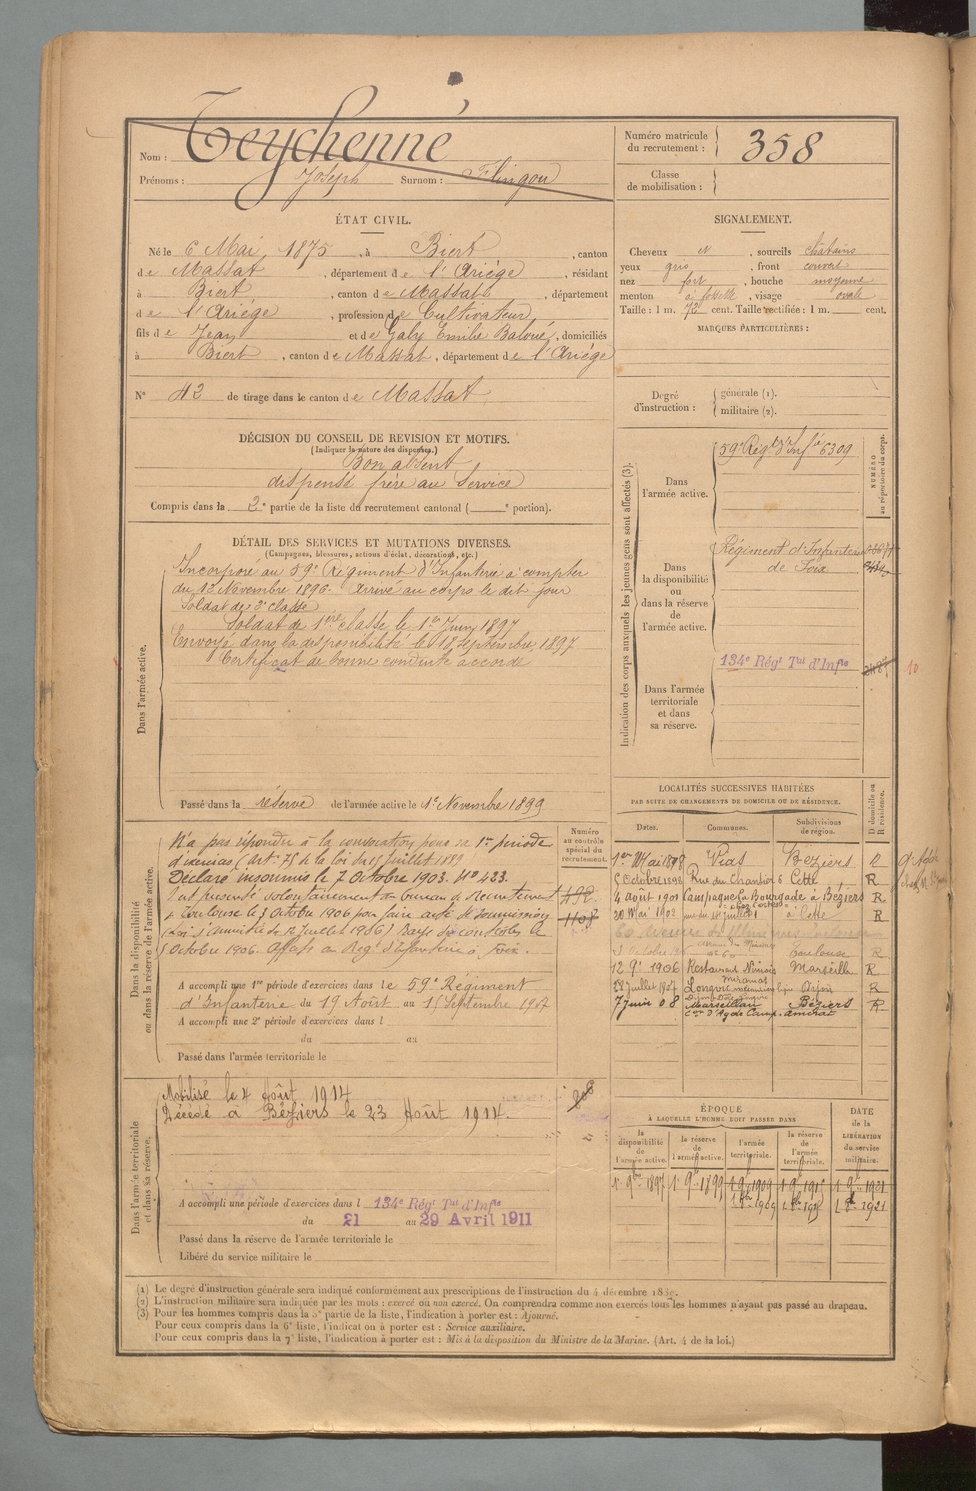 Nom : Teychenné
Prénoms : Joseph Surnom : Flingou
Numéro matricule du recrutement : 358
Classe de mobilisation :
ÉTAT CIVIL.
Né le 6 Mai 1875, à Biert, canton
de Massat, département de l'Ariége, résidant
à Biert, canton de Massat, département
de l'Ariége, profession de Cultivateur,
fils de Jean et de Galy Emilie, domiciliés
à Biert, canton de Massat, département de l'Ariége
N° 42 de tirage dans le canton de Massat
SIGNALEMENT.
Cheveux N, sourcils chatains
yeux gris, front couvert
nez fort, bouche moyenne
menton à fossette, visage ovale
Taille : 1 m. 72 cent. Taille rectifiée : 1 m. cent.
MARQUES PARTICULIÈRES :
Degré d'instruction : générale (1). militaire (2).
DÉCISION DU CONSEIL DE REVISION ET MOTIFS.
(Indiquer la nature des dispenses.)
Bon absent
dispensé frère au service
Compris dans la 2e partie de la liste du recrutement cantonal ( e portion).
DÉTAIL DES SERVICES ET MUTATIONS DIVERSES.
(Campagnes, blessures, actions d'éclat, décorations, etc.)
Dans l'armée active.
Incorporé au 59e Régiment d'Infanterie à compter
du 12 Novembre 1896. Arrivé au corps le dit jour
Soldat de 2e classe
Soldat de 1ère classe le 1er Juin 1897
Envoyé dans la disponibilité le 18 Septembre 1897
Certificat de bonne conduite accordé
Passé dans la réserve de l'armée active le 1er Novembre 1899
Indication des corps auxquels les jeunes gens sont affectés (3).
NUMÉRO au répertoire du corps.
Dans l'armée active.
59e Régt d'Inf à 6309
Dans la disponibilité ou dans la réserve de l'armée active.
Régiment d'Infanterie
de Foix
Dans l'armée territoriale et dans sa réserve.
134e Régt Tal d'Infie
10
Dans la disponibilité ou dans la réserve de l'armée active.
Numéro au contrôle spécial du recrutement.
N'a pas répondu à la convocation pour sa 1re période
d'exercices (art. 75 de la loi du 15 Juillet 1889
Déclaré insoumis le 7 Octobre 1903. No 423.
S'est présenté volontairement au bureau de Recrutement
de Toulouse le 3 Octobre 1906 pour faire acte de soumission
(Loi d'amnistie du 12 Juillet 1906) Rayé des contrôles le
5 Octobre 1906. Affecté au Régt d'Infanterie de Foix.
A accompli une 1re période d'exercices dans le 59e Régiment
d'Infanterie du 19 Août au 15 Septembre 1907
A accompli une 2e période d'exercices dans l
du au
Passé dans l'armée territoriale le
LOCALITÉS SUCCESSIVES HABITÉES
PAR SUITE DE CHANGEMENTS DE DOMICILE OU DE RÉSIDENCE.
Dates. Communes. Subdivisions de région. D domicile ou R résidence.
1er Mai 1898 Vias Béziers
5 Octobre 1898 Rue du Chantier 6 Cette R
4 août 1901 Campagne la Bourgade à Béziers R
20 Mai 1902 à Cette R
Toulouse R
12 9e 1906 Restaurant Nimois Marseille R
22 Juillet 1907 Longvic R
7 juin 08 Marseillan Béziers R
Dans l'armée territoriale et dans sa réserve.
Mobilisé le 4 Août 1914
Décédé à Béziers le 23 Août 1914.
A accompli une période d'exercices dans l 134e Régt Tal d'Infie
du 21 au 29 Avril 1911
Passé dans la réserve de l'armée territoriale le
Libéré du service militaire le
ÉPOQUE
À LAQUELLE L'HOMME DOIT PASSER DANS
la disponibilité de l'armée active. la réserve de l'armée active. l'armée territoriale. la réserve de l'armée territoriale.
DATE de la LIBÉRATION du service militaire.
1 9bre 1897 1 9bre 1899 1 9bre 1909 1 9bre 1915 1 9bre 1921
(1) Le degré d'instruction générale sera indiqué conformément aux prescriptions de l'instruction du 4 décembre 1889.
(2) L'instruction militaire sera indiquée par les mots : exercé ou non exercé. On comprendra comme non exercés tous les hommes n'ayant pas passé au drapeau.
(3) Pour les hommes compris dans la 5e partie de la liste, l'indication à porter est : Ajourné.
Pour ceux compris dans la 6e liste, l'indication à porter est : Service auxiliaire.
Pour ceux compris dans la 7e liste, l'indication à porter est : Mis à la disposition du Ministre de la Marine. (Art. 4 de la loi.)